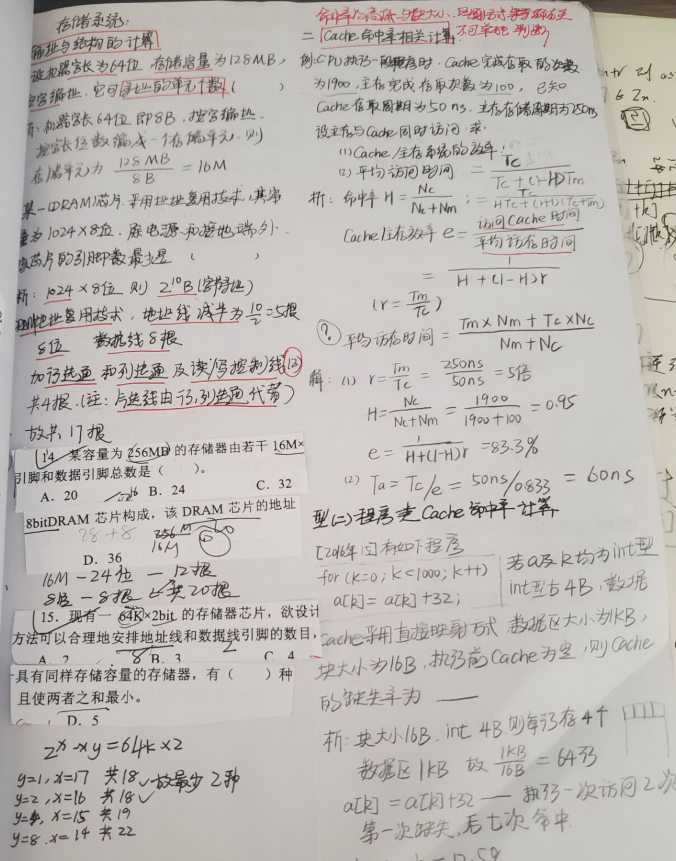 存储系统:
编址与结构的计算
设机器字长为64位, 存储容量为128MB,
按字编址, 它可寻址的单元个数 ( )
析: 机器字长64位 即8B, 按字编址.
按字长位数编成一个存储单元, 则
存储单元为 128MB / 8B = 16M
某一DRAM芯片, 采用地址复用技术, 其容
量为1024×8位, 除电源和接地端外,
该芯片的引脚数最少是 ( )
析: 1024×8位 则 2¹⁰B
地址复用技术, 地址线减半为 10/2 = 5根
8位 数据线8根
加行选通和列选通及读/写控制线(2)
共4根. (注: 片选线由行,列选通代替)
故共17根
14. 某容量为 256MB 的存储器由若干 16M×
引脚和数据引脚总数是( )。
A. 20 B. 24 C. 32
8bitDRAM 芯片构成，该 DRAM 芯片的地址
28+8 256M
16M
D. 36
16M—24位—12根
8位—8根 共20根
15. 现有一 64K×2bit 的存储器芯片，欲设计
方法可以合理地安排地址线和数据线引脚的数目，
A. 2 B. 3 C. 4
具有同样存储容量的存储器，有( )种
且使两者之和最小。
D. 5
2ˣ·y=64K×2
y=1, x=17 共18 ✓ 故最少2种
y=2, x=16 共18 ✓
y=4, x=15 共19
y=8, x=14 共22
命中率
二 Cache命中率相关计算 不可单独判断
例: CPU执行一段程序时, Cache完成存取的次数
为1900, 主存完成存取次数为100, 已知
Cache存取周期为50ns, 主存存储周期为250ns
设主存与Cache同时访问 求:
(1) Cache/主存系统的效率:
(2) 平均访问时间 = Tc / Tc+(1-H)Tm
析: 命中率 H = Nc / Nc+Nm ; = Tc / HTc+(1-H)(Tc+Tm)
Cache/主存效率 e = 访问Cache时间 / 平均访存时间
= 1 / H+(1-H)r
(r = Tm/Tc)
? 平均访存时间 = Tm×Nm+Tc×Nc / Nm+Nc
解: (1) r = Tm/Tc = 250ns/50ns = 5倍
H = Nc / Nc+Nm = 1900 / 1900+100 = 0.95
e = 1 / H+(1-H)r = 83.3%
(2) Ta = Tc/e = 50ns/0.833 = 60ns
型(二) 程序类Cache命中率计算
[2016年15]有如下程序
for (k=0; k<1000; k++)
a[k] = a[k]+32;
若a及k均为int型
int型占4B, 数据
Cache采用直接映射方式 数据区大小为1KB,
块大小为16B, 执行前Cache为空, 则Cache
的缺失率为 ——
析: 块大小16B, int 4B, 则每行存4个
数据区1KB 故 1KB/16B = 64行
a[k] = a[k]+32 —— 执行一次访问2次
第一次缺失, 后七次命中